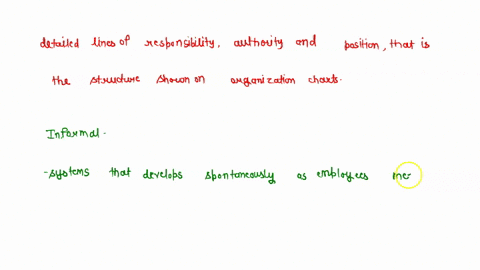 detailed lines of responsibility, authority and position, that is
the structure shown on organization charts.
Informal.
-systems that develops spontaneously as employees me